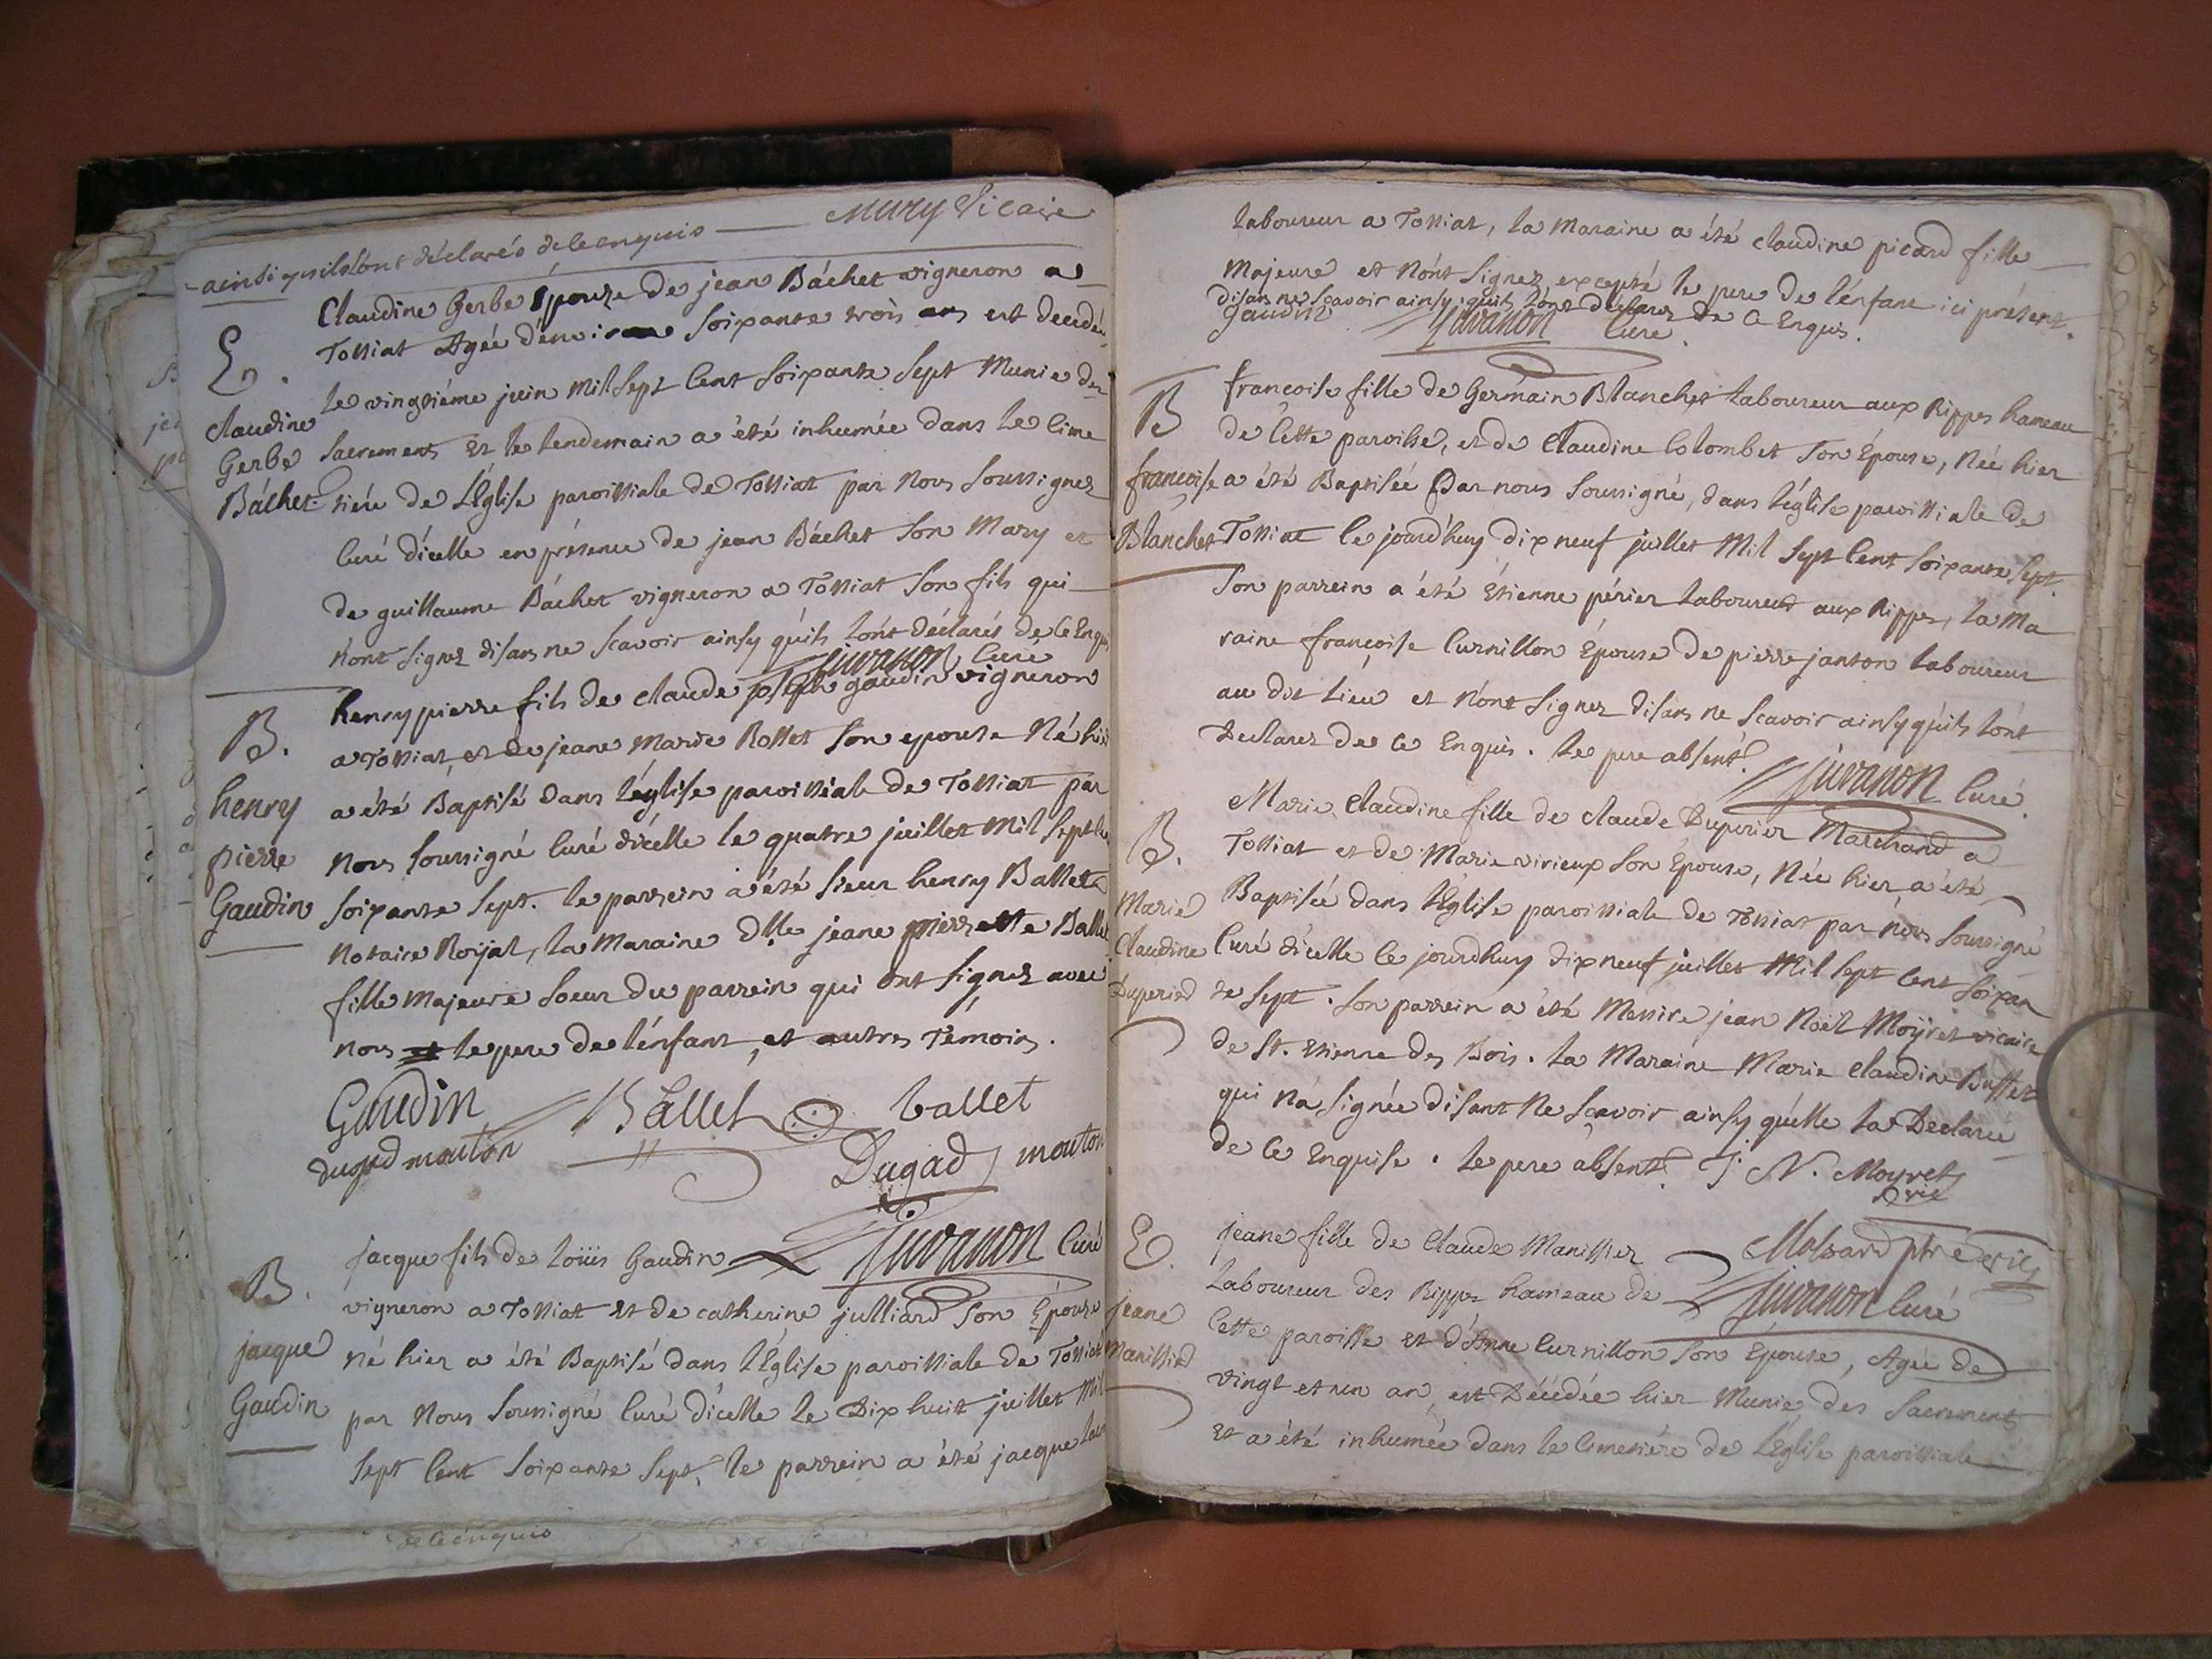 ainsi qu'ils lónt déclarés de ce enquis — Mury Vicaire
E.
claudine
Gerbe
Báchet.
Claudine Gerbe Épouse de jean Báchet vigneron a
Tossiat Agée d'énviron soixante trois ans est decedée
le vingtiéme juin mil sept Cent soixante sept Munie des
sacrements Et le lendemain a été inhumée dans le Cime
tiére de L'Église paroissiale de Tossiat par Nous soussignez
Curé d'icelle en présence de jean Báchet son Mary et
de guillaume Báchet vigneron a Tossiat son fils qui
n'ont signez disans ne scavoir ainsy qu'ils lónt déclarés de Ce Enquis
Juvanon Curé
B.
henry
pierre
Gaudin
henry pierre fils de claude joseph gaudin vigneron
a Tossiat, et de jeane Marie Rollet son epouse Né hier
a été Baptisé dans l'église paroissiale de Tossiat par
nous soussigné Curé d'icelle le quatre juillet Mil sept Cent
soixante sept. le parrein a été sieur henry Ballet
notaire Royal, la Maraine Dlle jeane pierrette Ballet
fille Majeure soeur du parrein qui ont signez avec
nous et le pere de l'énfant, et autres Témoins.
Gaudin Ballet ballet
dugad mouton Dugad mouton
Juvanon Curé
B.
jacque
Gaudin
jacque fils de Loüis Gaudin
vigneron a Tossiat Et de catherine julliard son Épouse
né hier a été Baptisé dans L'Église paroissiale de Tossiat
par Nous soussigné Curé d'icelle Le Dix huit juillet Mil
sept Cent soixante sept, le parrein a été jacque
de ce enquis
Laboureur a Tossiat, la Maraine a été claudine picard fille
Majeure et N'ónt signez, excepté le pere de l'énfant ici présent.
disans ne scavoir ainsy qu'ils lónt déclarez de Ce Enquis.
gaudin Juvanon Curé.
B
francoise
Blanchet
francoise fille de Germain Blanchet Laboureur aux Rippes hameau
de Cette paroisse, et de Claudine Colombet son Épouse, Née hier
a été Baptisée Par nous soussigné, dans l'église paroissiale de
Tossiat le jourd'huy dix neuf juillet Mil sept Cent soixante sept.
son parrein a été Étienne périer Laboureur aux Rippes, la Ma
raine francoise Curnillon Épouse de pierre janton laboureur
au dit Lieu et N'ónt signez disans ne scavoir ainsy qu'ils lónt
Declarez de Ce Enquis. le pere absent.
Juvanon Curé
B.
Marie
Claudine
Duperier
Marie Claudine fille de claude Duperier Marchand a
Tossiat et de Marie virieux son Épouse, Née hier a été
Baptisée dans L'Église paroissiale de Tossiat par nous soussigné
Curé d'icelle le jourd'huy dix neuf juillet Mil sept Cent soixan
te sept. son parrein a été Messire jean Noël Moÿret vicaire
de St. Etienne des Bois. la Maraine Marie Claudine Buffet
qui n'a signée disant Ne scavoir ainsy qu'elle la Declarée
de Ce Enquise. le pere absent. J. N. Moyret
vic
Molsard ptre vic
Juvanon Curé
E.
jeane
Manissier
jeane fille de Claude Manissier
Laboureur des Rippes hameau de
Cette paroisse et d'Anne Curnillon son Épouse, Agée de
vingt et un an, est Décédée hier Munie des sacrements
Et a été inhumée dans le Cimetiére de L'Église paroissiale